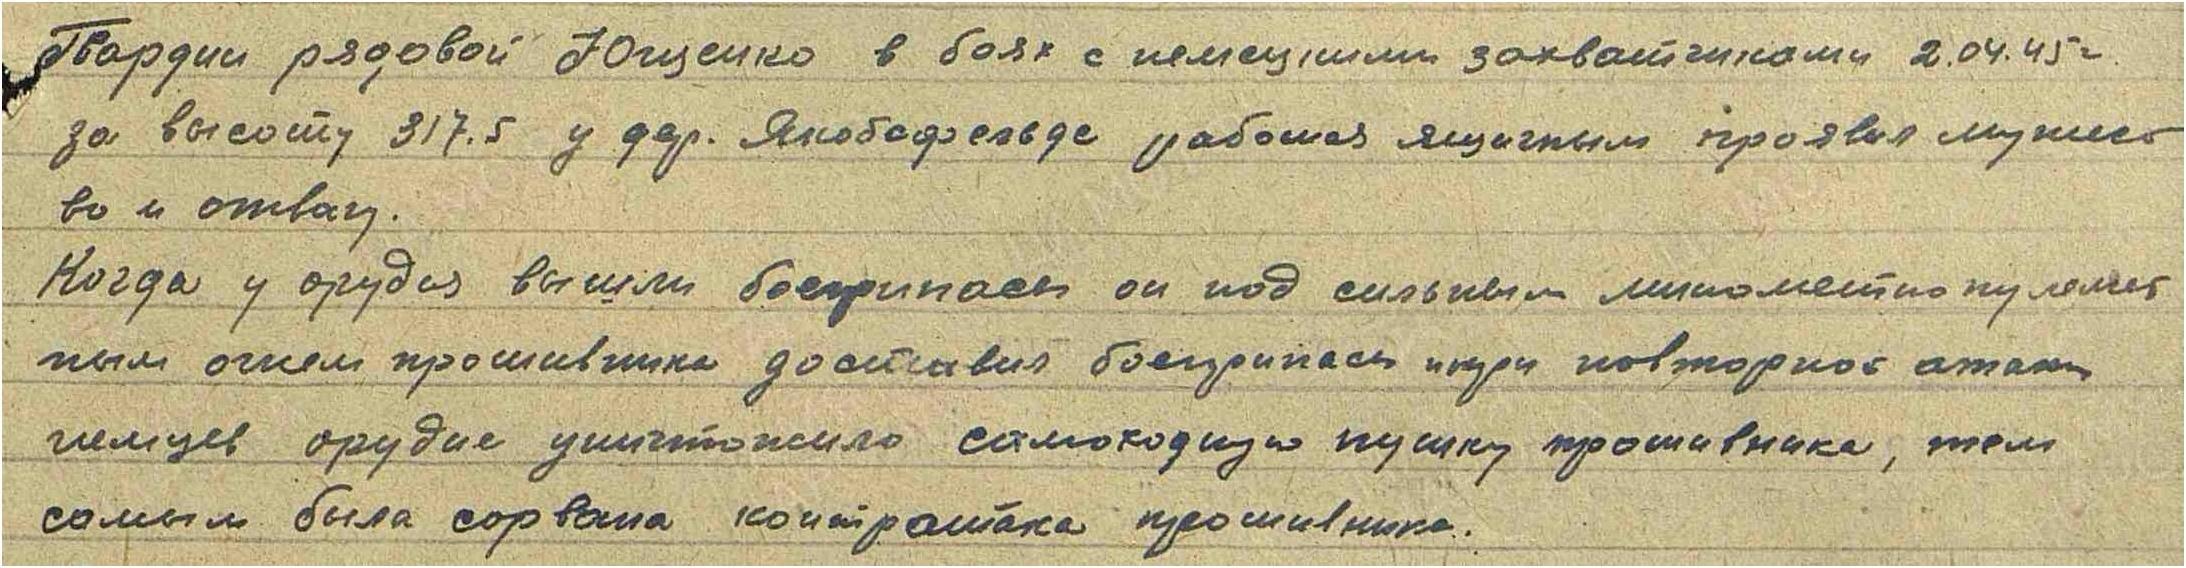 Гвардии рядовой Ющенко в боях с немецкими захватчиками 2.04.45г.
за высоту 317.5 у дер. Якобсфельде работая ящичным проявил мужест
во и отвагу.
Когда у орудия вышли боеприпасы он под сильным минометно пулемет
ным огнем противника доставил боеприпасы и при повторной атаки
немцев орудие уничтожило самоходную пушку противника, тем
самым была сорвана контратака противника.